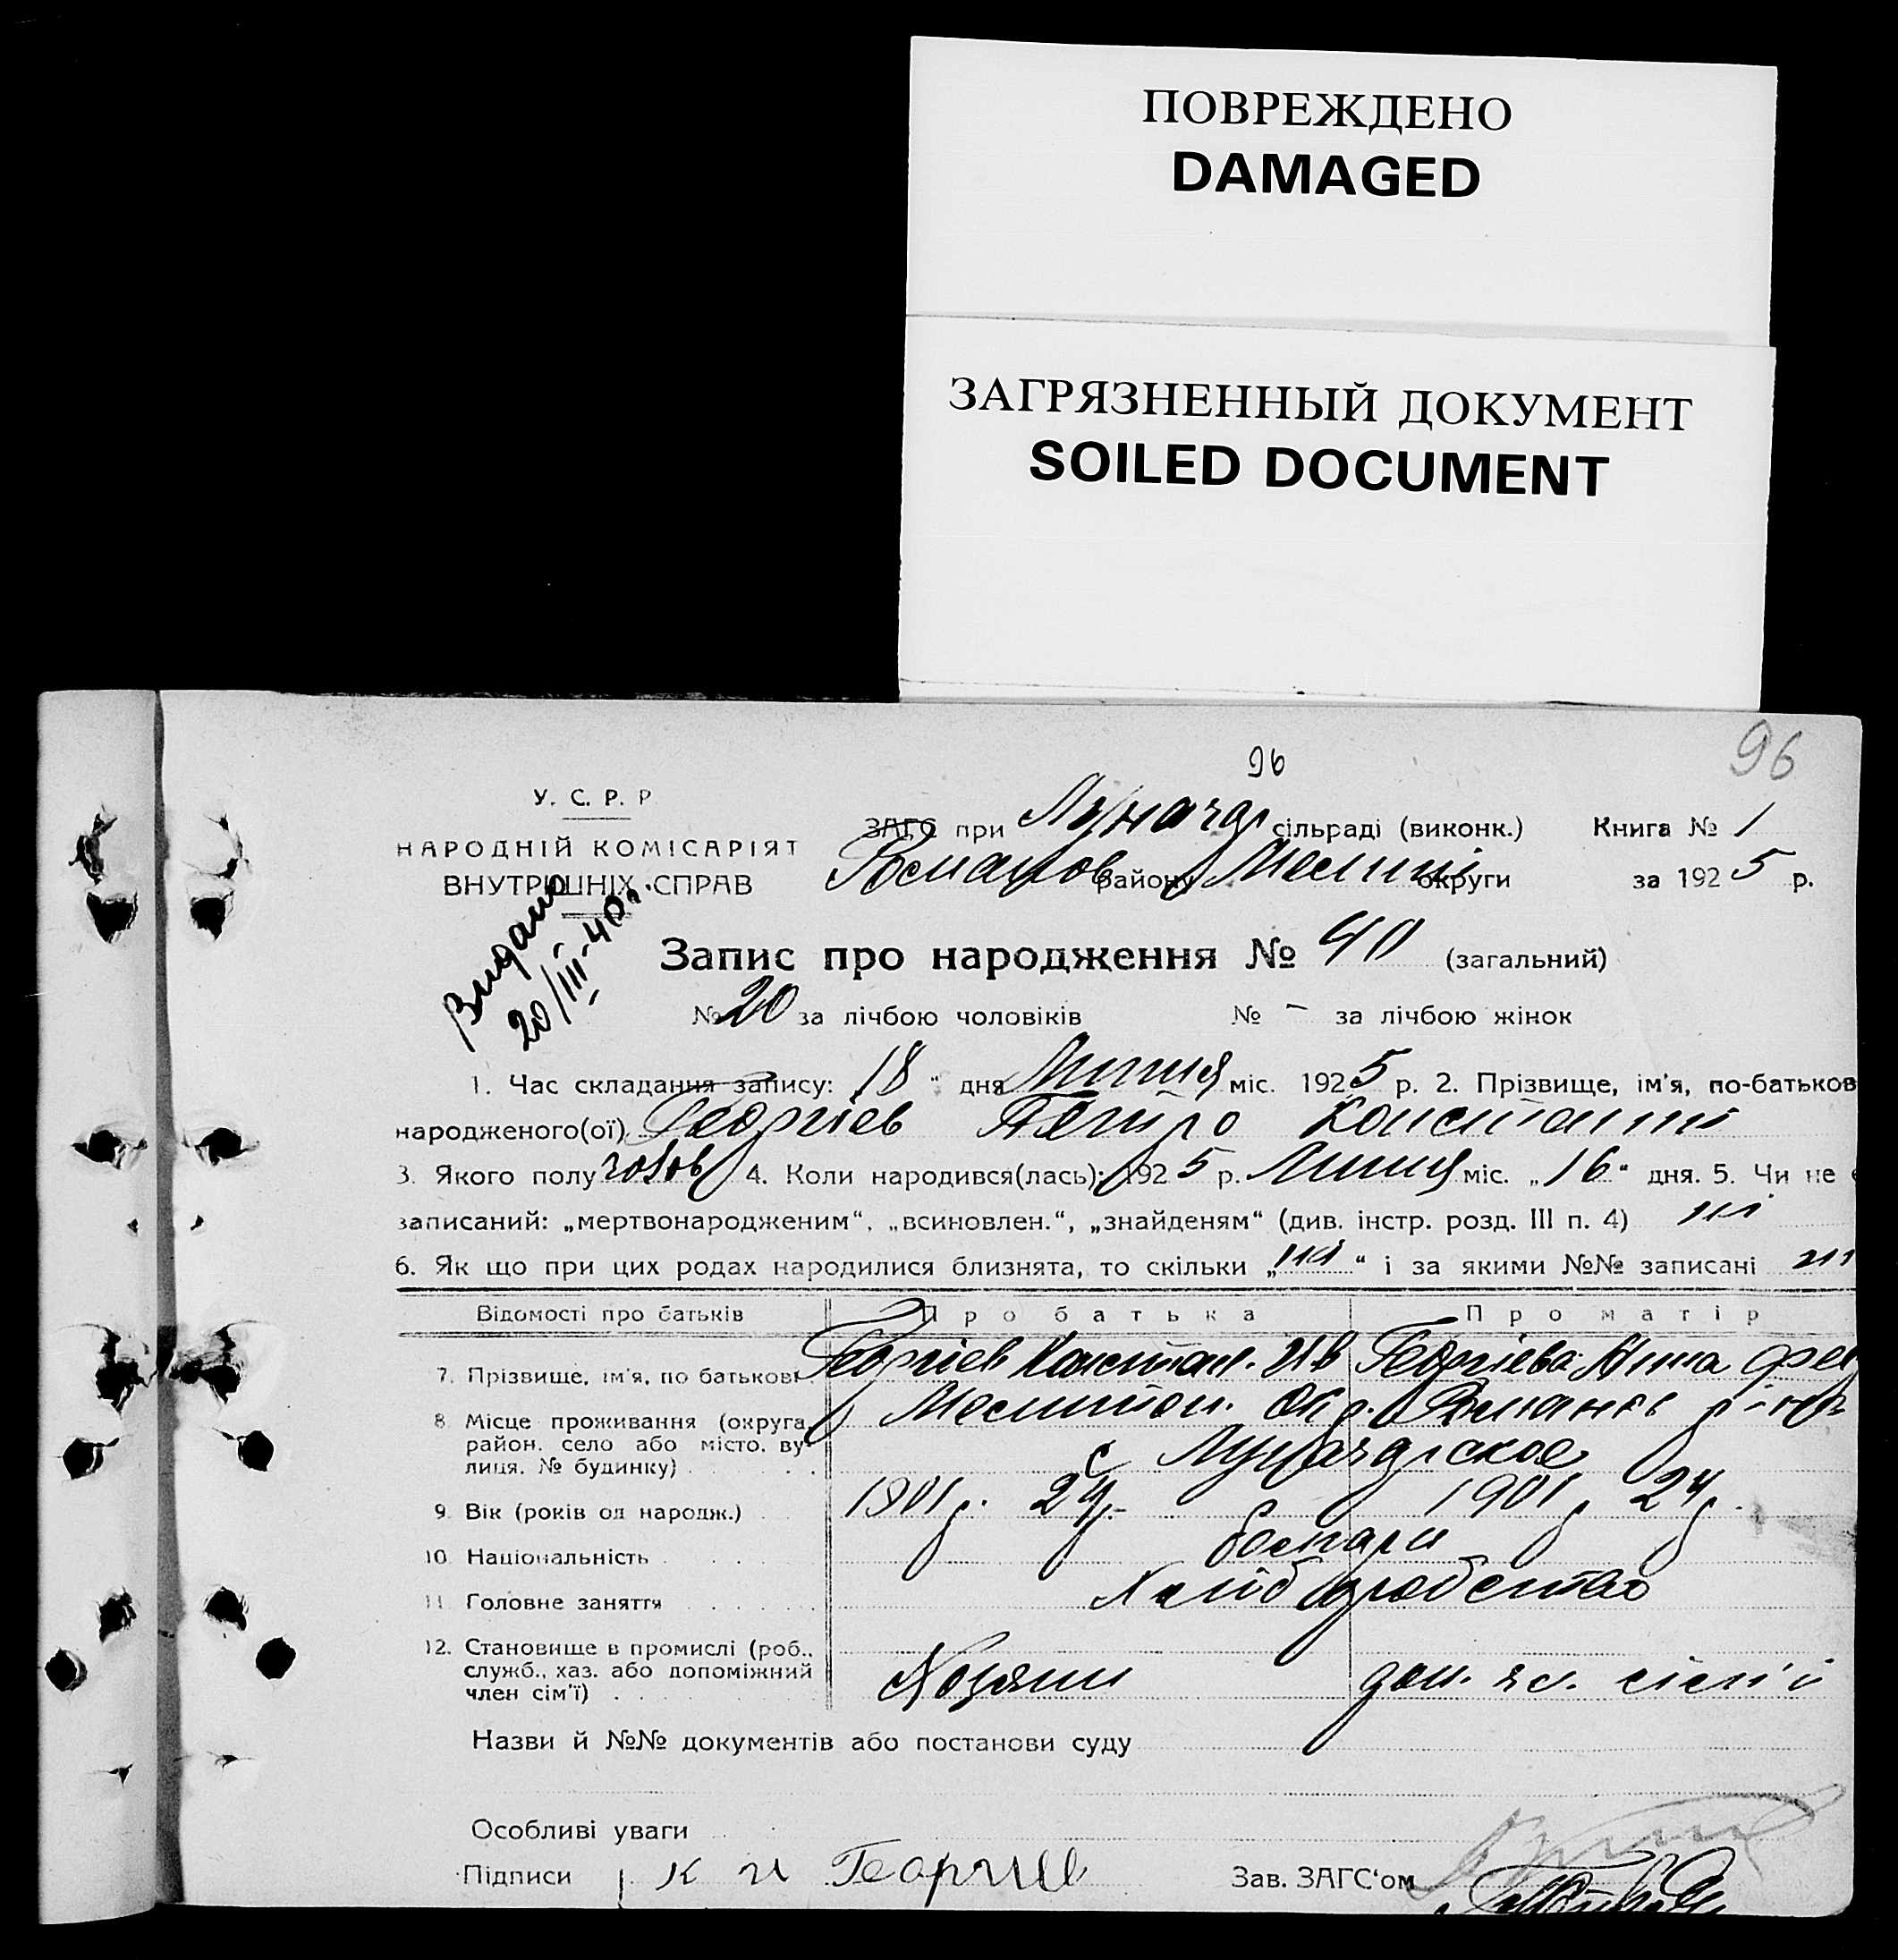 ПОВРЕЖДЕНО
DAMAGED
ЗАГРЯЗНЕННЫЙ ДОКУМЕНТ
SOILED DOCUMENT
96
96
У. С. Р. Р
НАРОДНІЙ КОМІСАРІЯТ
ВНУТРІШНІХ СПРАВ
ЗАГС при Луначар сільраді (виконк.) Книга № 1
району Мелит округи за 1925 р.
Видано
20/III-40
Запис про народження № 40 (загальний)
№ 20 за лічбою чоловіків № – за лічбою жінок
1. Час складання запису: 18 " дня Липня міс. 1925 р. 2. Прізвище, ім'я, по-батьков
народженого(ої) Георгіев Петро Констант
3. Якого полу чолов 4. Коли народився(лась): 1925 р. Липня міс. „16" дня. 5. Чи не є
записаний: „мертвонародженим", „всиновлен.", „знайденям" (див. інстр. розд. III п. 4) ні
6. Як що при цих родах народилися близнята, то скільки „ні" і за якими №№ записані
Відомості про батьків Про батька Про матір
7. Прізвище, ім'я, по батькові Георгіев Констан. Ив Георгієва Анна
8 Місце проживання (округа, район. село або місто. вулиця. № будинку) Мелитоп. Окр.
с Луначарское
9. Вік (років од народж.) 1901 24 1901 24
10. Національність болгари
11 Головне заняття Хліборобство
12. Становище в промислі (роб., служб., хаз. або допоміжний член сім'ї) Хозяин доп. чл. сім'ї
Назви й №№ документів або постанови суду
Особливі уваги
Підписи К И Георгиев Зав. ЗАГС'ом